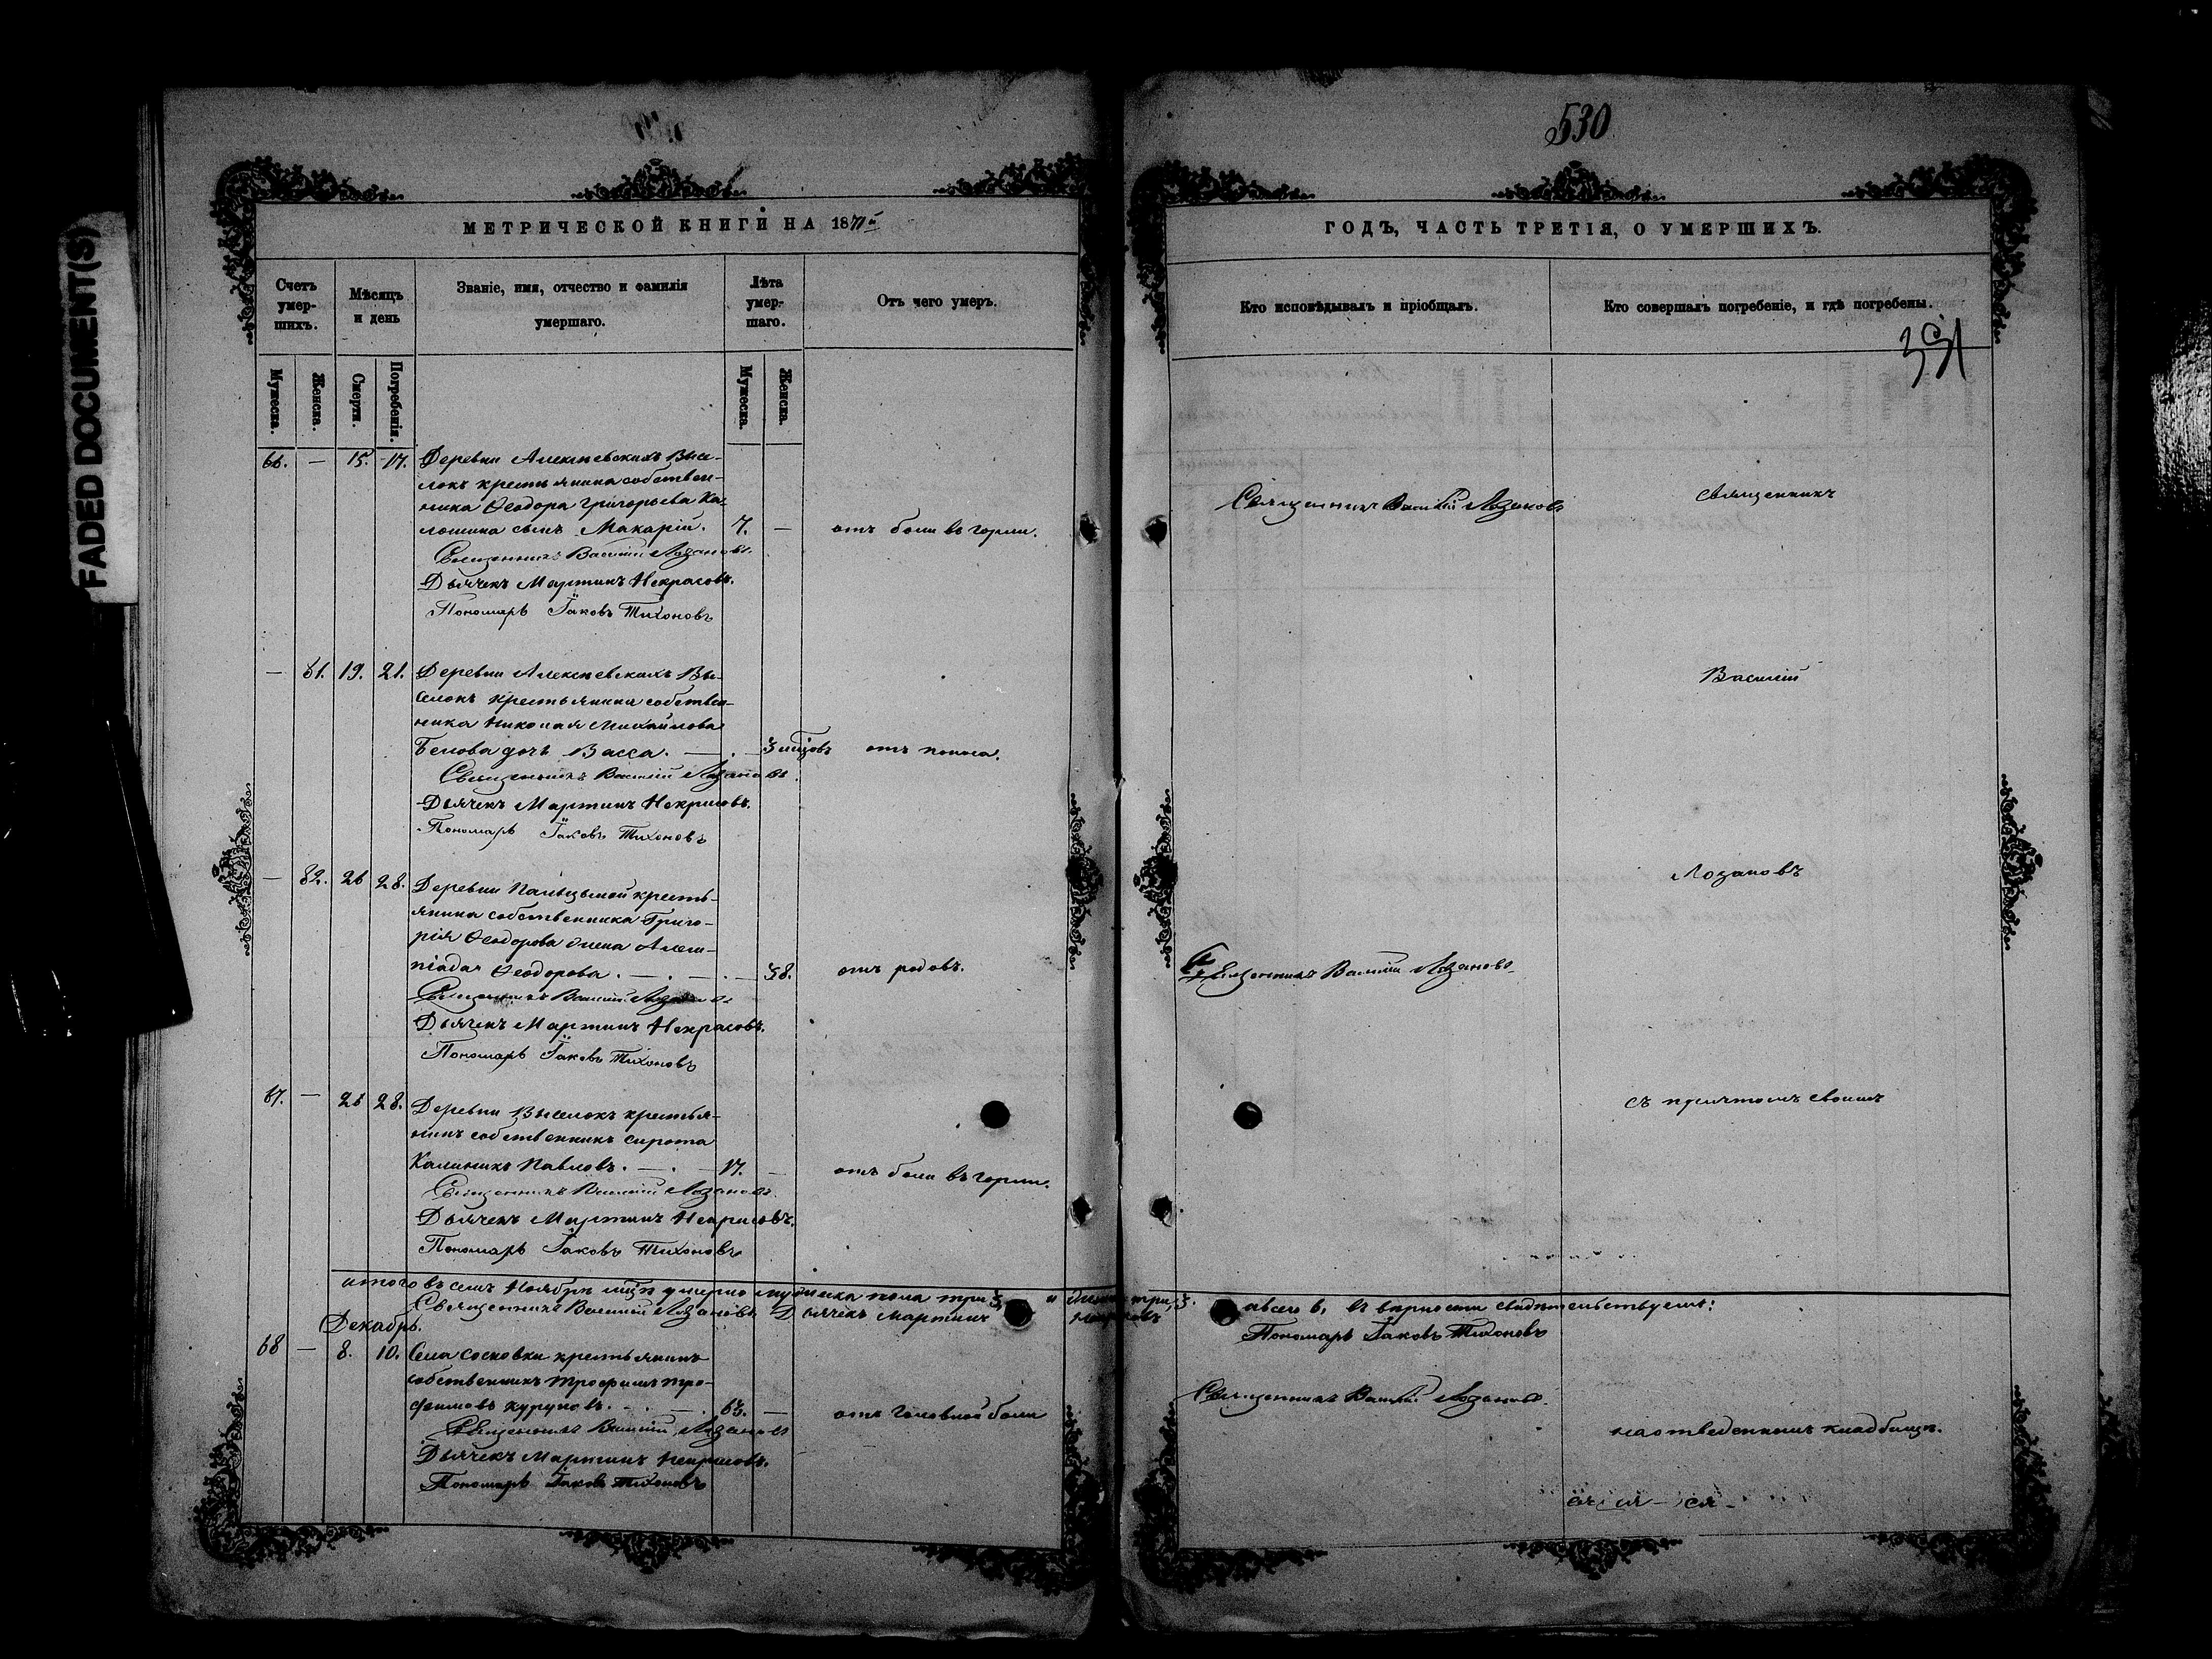 FADED DOCUMENT(S)
МЕТРИЧЕСКОЙ КНИГИ НА 1871й
Счетъ умер-шихъ.
Мѣсяцъ и день
Званіе, имя, отчество и фамилія умершаго.
Лѣта умер-шаго.
Отъ чего умеръ.
Мужеска.
Женска.
Смерти.
Погребенія.
Мужеска.
Женска.
66. — 15. 17. Деревни Алексѣевскихъ Высе-
локъ крестьянина собствен-
ника Ѳеодора Григорьева Ка-
лошина сынъ Макарій. 7. — отъ боли въ горлѣ.
Священникъ Василій Лозановъ.
Дьячекъ Мартинъ Некрасовъ.
Пономарь Іаковъ Тихоновъ
— 81. 19. 21. Деревни Алексѣевскихъ Вы-
селокъ крестьянина собствен-
ника Николая Михайлова
Белова дочь Васса. — . — 3 мцовъ отъ поноса.
Священникъ Василій Лозановъ.
Дьячекъ Мартинъ Некрасовъ.
Пономарь Іаковъ Тихоновъ
— 82. 26 28. Деревни крестъ-
янина собственника Григо-
рія Ѳеодорова жена
Ѳеодорова. — . — . — 38. отъ родовъ.
Священникъ Василій Лозановъ
Дьячекъ Мартинъ Некрасовъ.
Пономарь Іаковъ Тихоновъ
67. — 26 28. Деревни Выселокъ крестья-
нинъ собственникъ сирота
Калиникъ Павловъ. — . — 17. — отъ боли въ горлѣ.
Священникъ Василій Лозановъ.
Дьячекъ Мартинъ Некрасовъ.
Пономарь Іаковъ Тихоновъ
итого въ семъ Ноябрѣ мцѣ умерло мужеска пола три 3, и женска три, 3.
Священникъ Василій Лозановъ. Дьячекъ Мартинъ Некрасовъ
Декабрь.
68 — 8. 10. Села Сосновки крестьянинъ
собственникъ Трофимъ Тро-
фимовъ Куруновъ. — . — . 63. — отъ головной боли
Священникъ Василій Лозановъ
Дьячекъ Мартинъ Некрасовъ.
Пономарь Іаковъ Тихоновъ
530
ГОДЪ, ЧАСТЬ ТРЕТІЯ, О УМЕРШИХЪ.
Кто исповѣдывалъ и пріобщалъ.
Кто совершалъ погребеніе, и гдѣ погребены.
Священникъ Василій Лозановъ
священникъ
Василій
Лозановъ
Священникъ Василій Лозановъ
съ причтомъ своимъ
а всего 6, въ вѣрности свидѣтельствуемъ:
Пономарь Іаковъ Тихоновъ
Священникъ Василій Лозановъ.
на отведенномъ кладбищѣ.